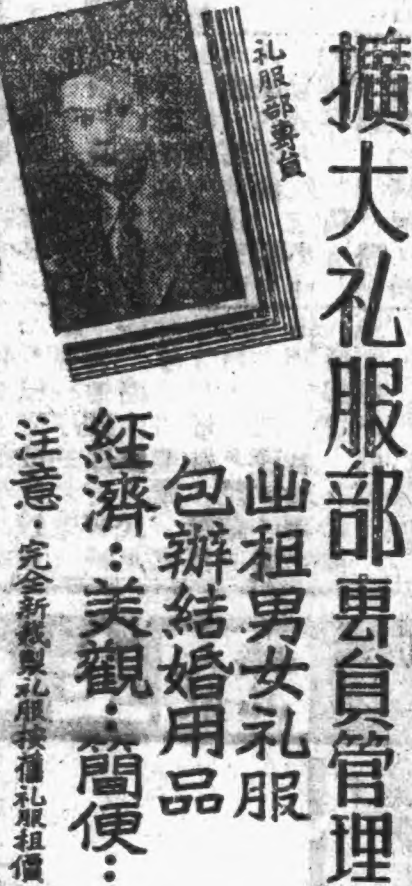 擴大礼服部專員管理
礼服部專員
出租男女礼服
包辦結婚用品
經濟：美觀：簡便：
注意・完全新裁製礼服按舊礼服租價